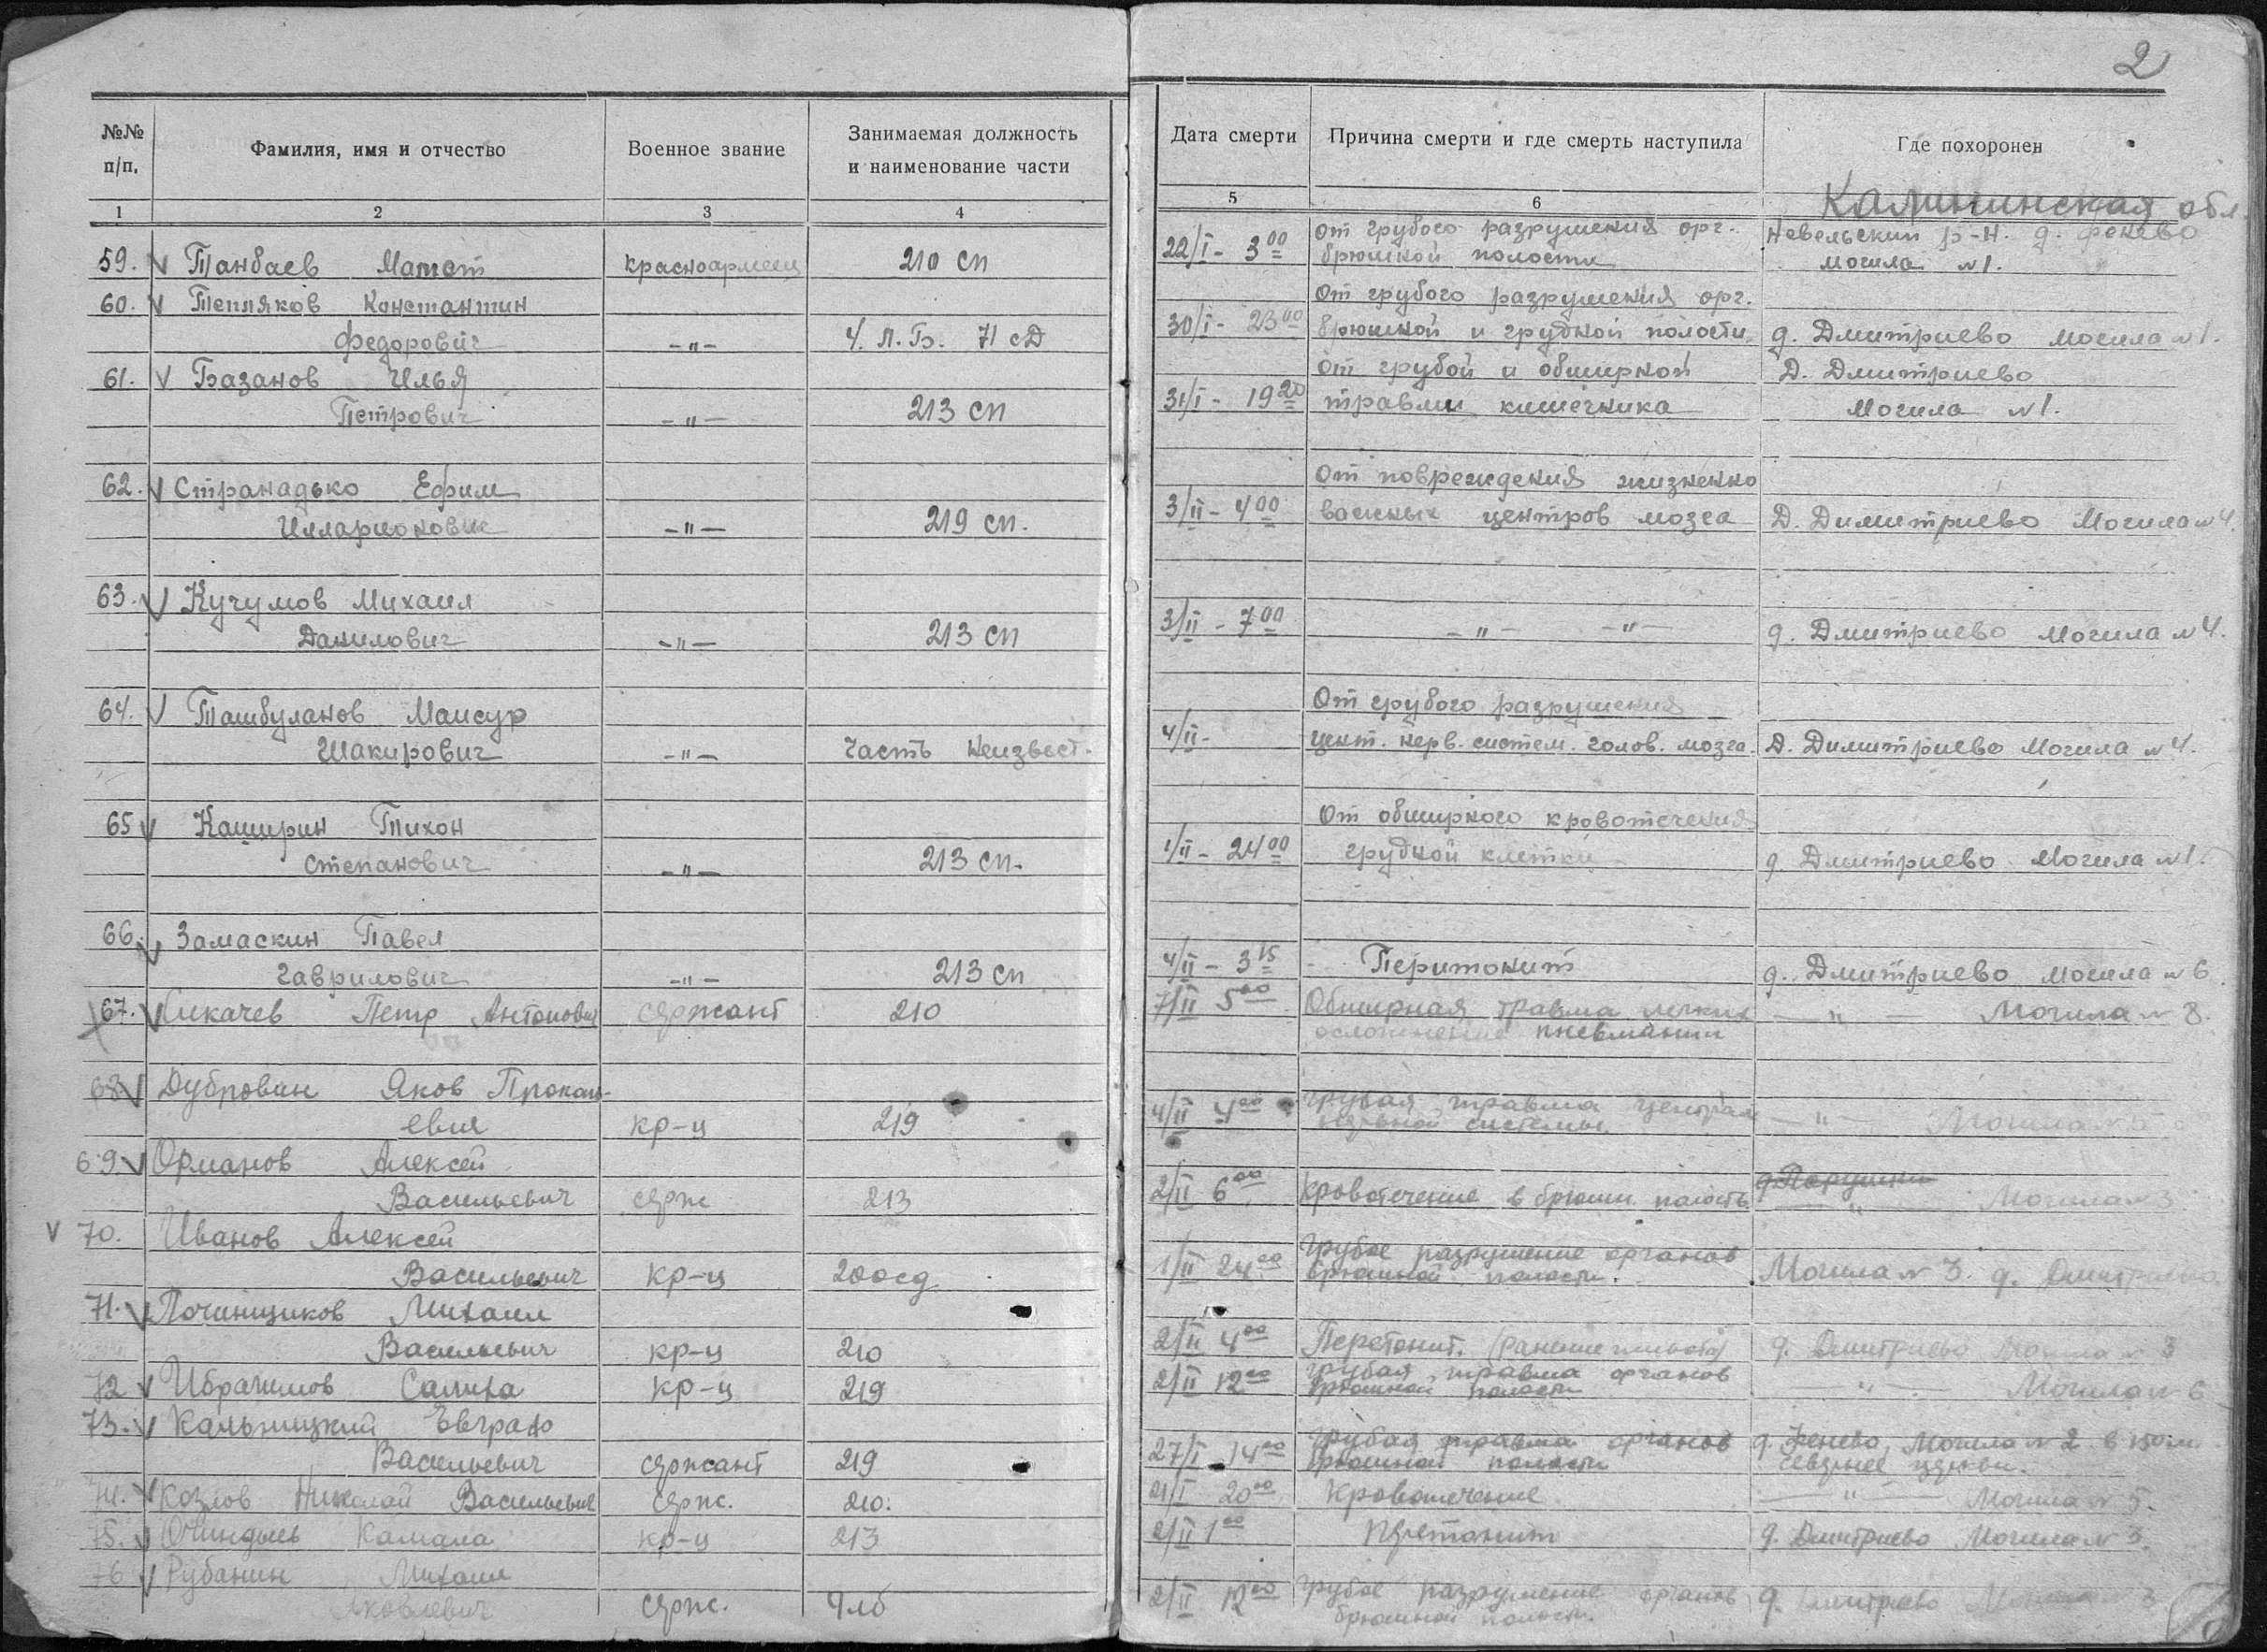 2
№№ п/п.
Фамилия, имя и отчество
Военное звание
Занимаемая должность и наименование части
Дата смерти
Причина смерти и где смерть наступила
Где похоронен
1 2 3 4 5 6
Калининская обл.
59. Танбаев Мамет красноармеец 210 сп 22/I - 3 00 От грубого разрушения орг. брюшной полости Невельский р-н. д. Фенево могила №1.
60. Тепляков Константин
Федорович -"- 4. Л.Б. 71 сД 30/I - 23 00 От грубого разрушения орг. брюшной и грудной полости д. Дмитриево могила №1.
61. Базанов Илья
Петрович -"- 213 сп 31/I - 19 20 От грубой и обширной травмы кишечника Д. Дмитриево Могила №1.
62. Странадько Ефим
Илларионович -"- 219 сп. 3/II - 4 00 От повреждения жизненно важных центров мозга Д. Димитриево Могила №4.
63. Кучумов Михаил
Данилович -"- 213 сп 3/II - 7 00 -"- -"- д. Дмитриево Могила №4.
64. Ташбуланов Мансур
Шакирович -"- часть неизвест. 4/II - От грубого разрушения цент. нерв. систем. голов. мозга. Д. Димитриево Могила №4.
65 Каширин Тихон
Степанович -"- 213 сп. 1/II - 24 00 От обширного кровотечения грудной клетки д. Дмитриево Могила №1.
66. Замаскин Павел
Гаврилович -"- 213 сп 4/II - 3 15 Перитонит д. Дмитриево могила №6
67. Ликачев Петр Антонович сержант 210 7/II 5 00 Обширная травма легких осложнение пневмании -"- Могила №8.
68 Дубрович Яков Прокоп-
евич кр-ц 219 4/II 4 00 Грубая травма централ нервной системы -"- Могила №
69 Орманов Алексей
Васильевич серж 213 2/II 6 00 Кровотечение в брюшн. полость -"- Могила №3
70. Иванов Алексей
Васильевич кр-ц 200сд 1/II 24 00 Грубое разрушение органов брюшной полости. Могила №3. д. Дмитриево
71. Починщиков Михаил
Васильевич кр-ц 210 2/II 4 00 Перетонит. (ранение живота) д. Дмитриево Могила №3
72 Ибрагимов Салиха кр-ц 219 2/II 12 00 Грубая травма органов брюшной полости -"- Могила №6
73. Кальницкий Евграф
Васильевич сержант 219 27/I 14 00 Грубая травма органов брюшной полости д. Фенево, Могила №2 в 150 м. севернее церкви.
74. Козлов Николай Васильевич серж. 210. 21/I 20 00 Кровотечение -"- Могила №5.
75. Камала кр-ц 213 2/II 1 00 Перетонит д. Дмитриево Могила №3.
76 Рубанин Михаил
Яковлевич серж. 4лб 2/II 12 00 Грубое разрушение органов брюшной полости. д. Дмитриево Могила №3